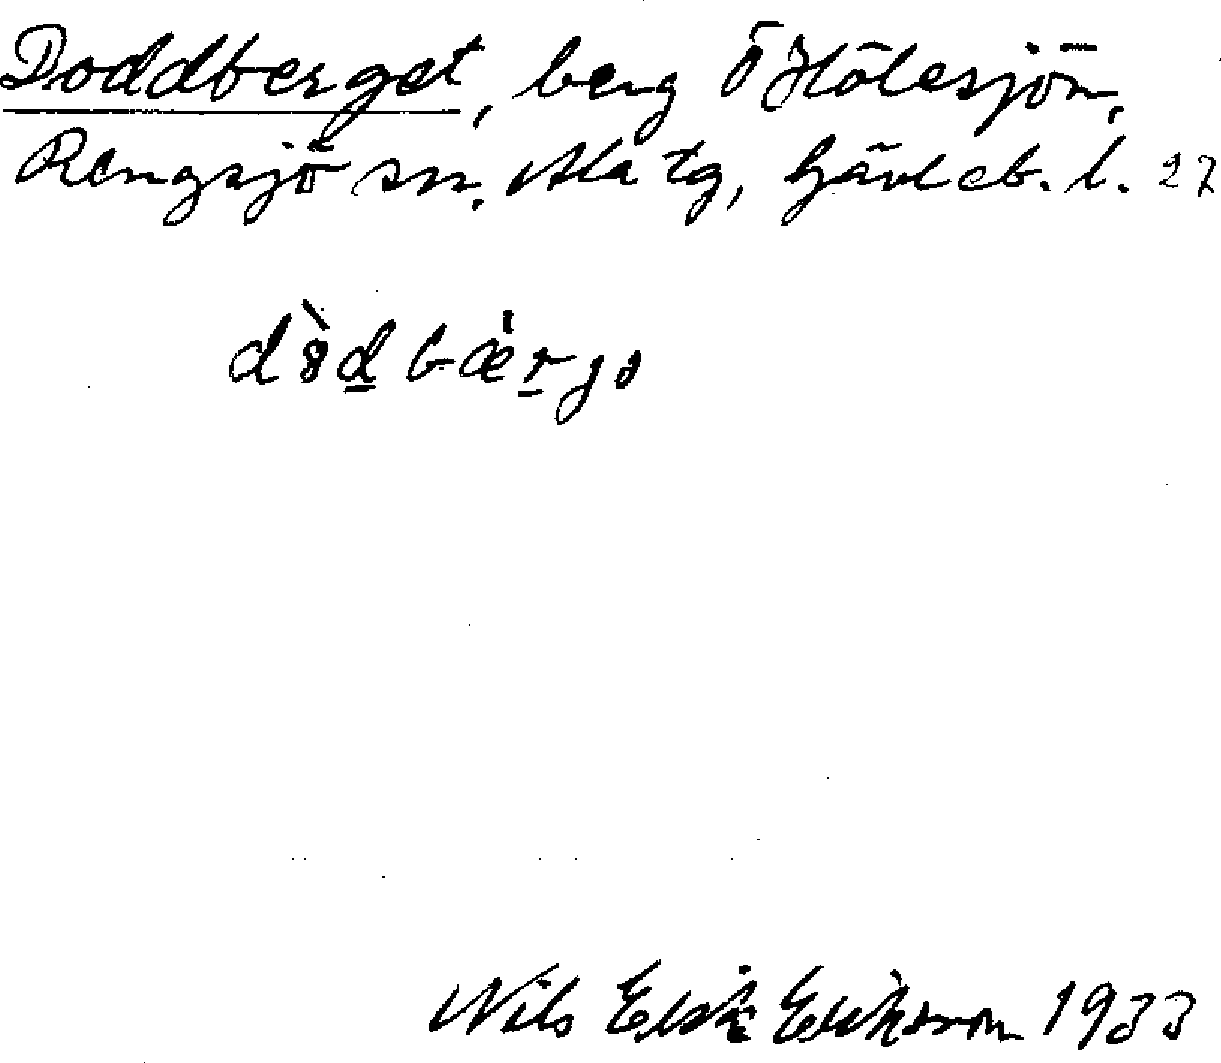 Doddberget, berg Ö Hölesjön,
Rengsjö sn, Ala tg, Gävleb. l. 27
Nils Erik Eriksson 1933